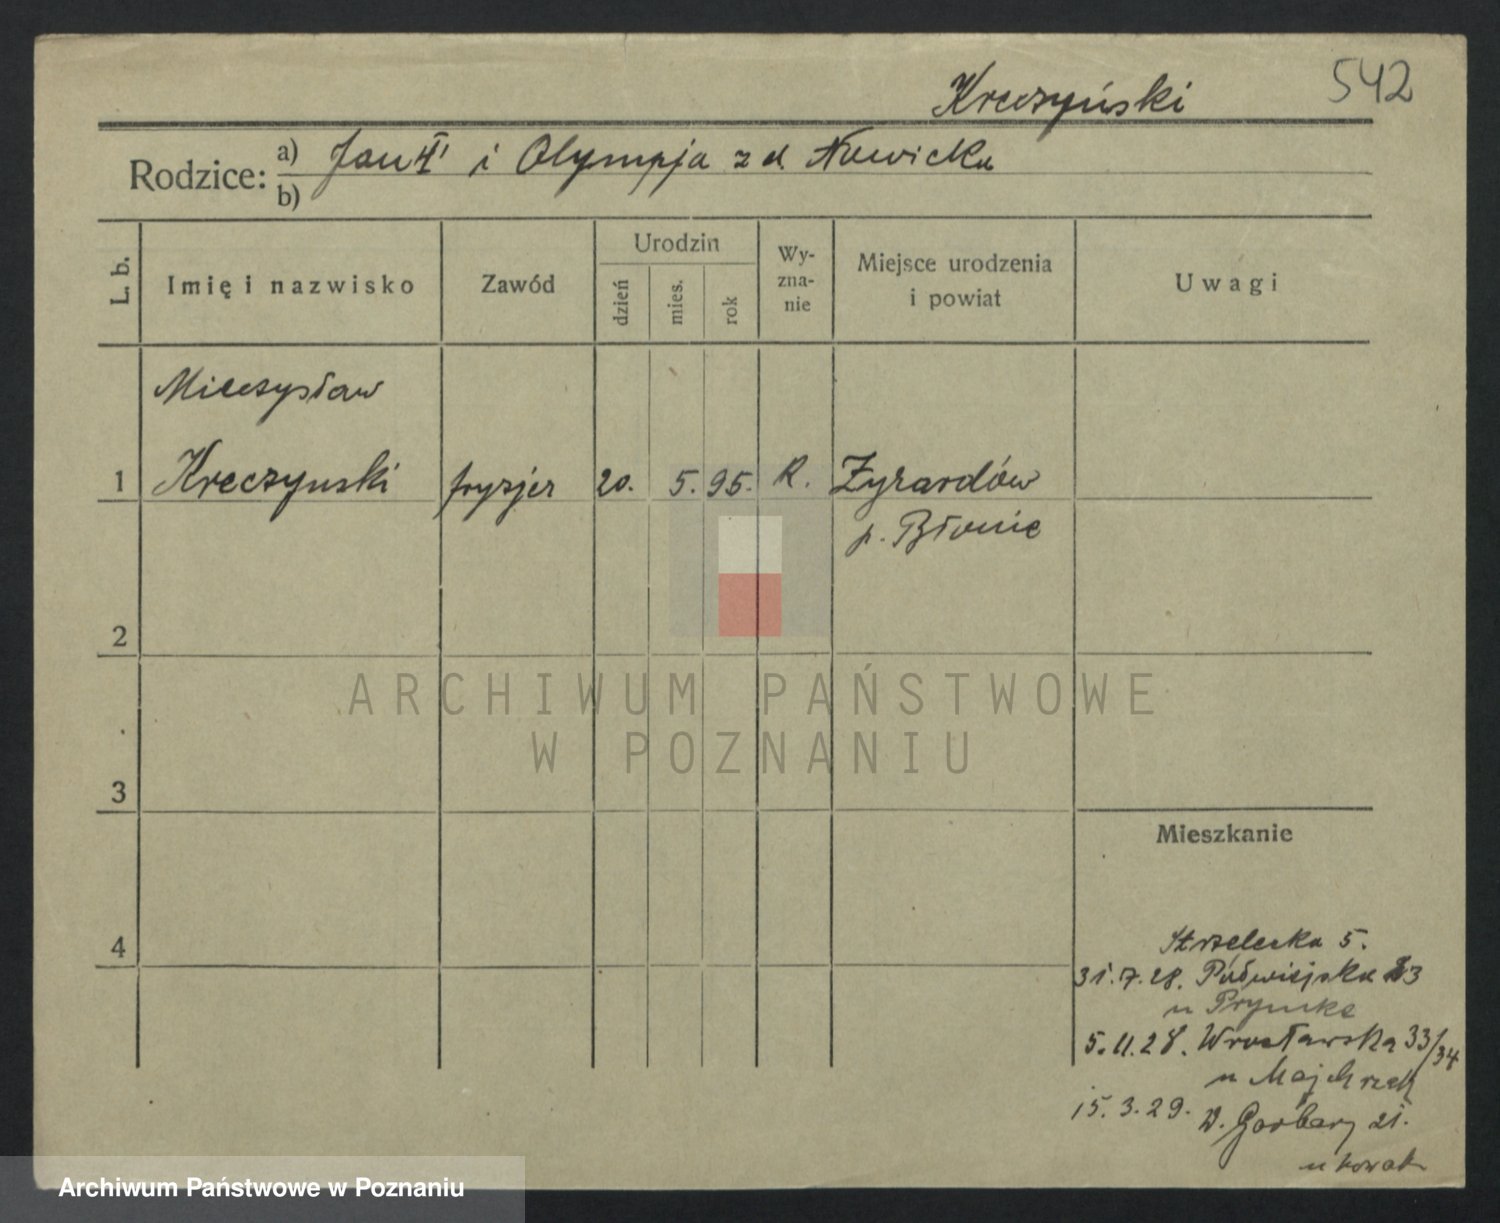 Kreczyński 542
Rodzice: a) Jan † i Olympja z d. Nowicka
b)
L. b. Imię i nazwisko Zawód Urodzin dzień mies. rok Wy-zna-nie Miejsce urodzenia i powiat Uwagi
Mieczysław
1 Kreczynski fryzjer 20. 5. 95. R. Zyrardów
p. Błonie
2
ARCHIWUM PAŃSTWOWE
W POZNANIU
3
Mieszkanie
4
Strzelecka 5.
31.7.28. Półwiejska
u Prymke
5.11.28. Wrocławska 33/34
u Majchrzak
15.3.29. W. Garbary 21.
u Nowak
Archiwum Państwowe w Poznaniu